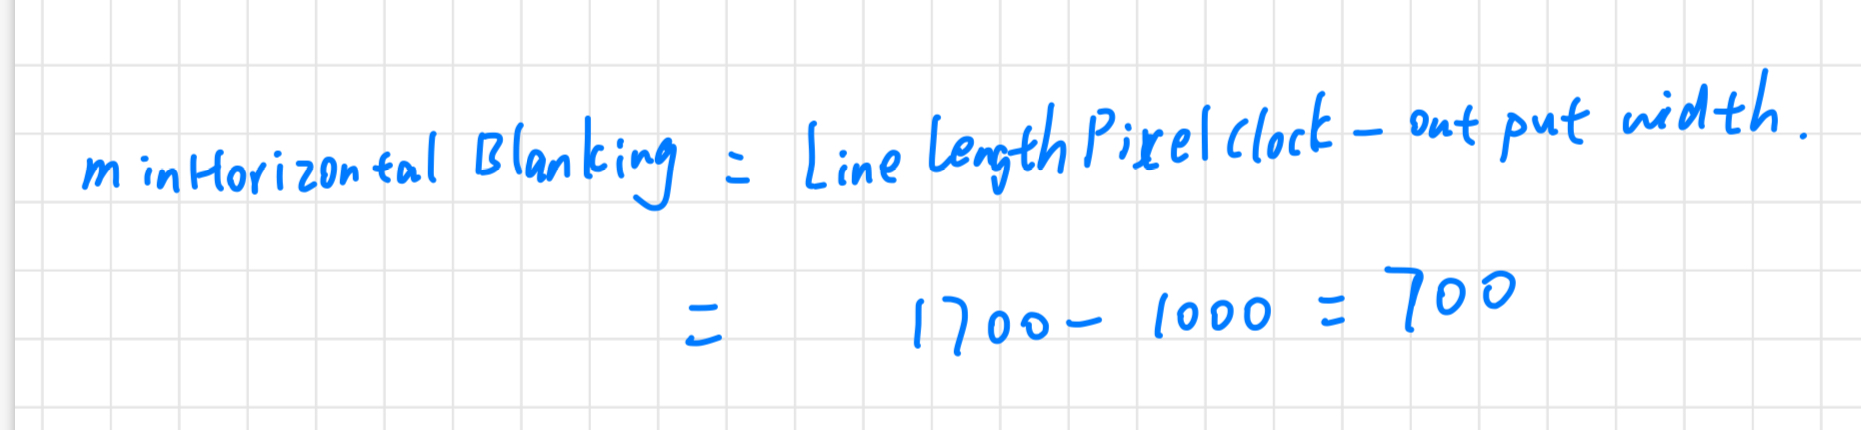 minHorizontal Blanking = Line Length Pixel Clock - output width.
= 1700 - 1000 = 700